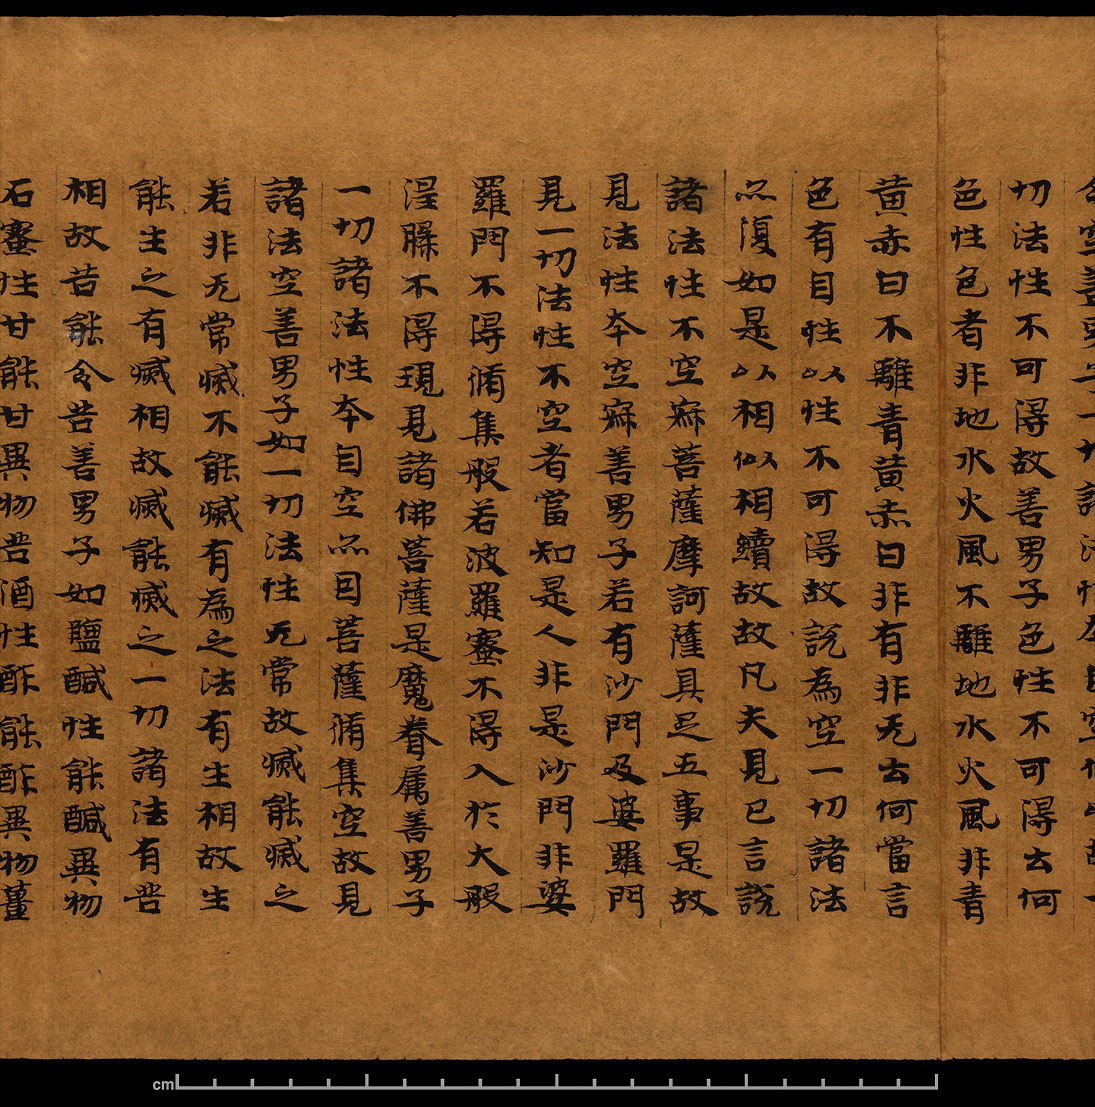 空善男子一切諸法性本自空何以故一
切法性不可得故善男子色性不可得云何
色性色者非地水火風不離地水火風非青
黃赤白不離青黃赤白非有非无云何當言
色有自性以性不可得故說為空一切諸法
亦復如是以相似相續故故凡夫見已言說
諸法性不空寂菩薩摩訶薩具足五事是故
見法性本空寂善男子若有沙門及婆羅門
見一切法性不空者當知是人非是沙門非婆
羅門不得脩集般若波羅蜜不得入於大般
涅槃不得現見諸佛菩薩是魔眷屬善男子
一切諸法性本自空亦因菩薩脩集空故見
諸法空善男子如一切法性无常故滅能滅之
若非无常滅不能滅有為之法有生相故生
能生之有滅相故滅能滅之一切諸法有苦
相故苦能令苦善男子如鹽醎性能醎異物
石蜜性甘能甘異物苦酒性酢能酢異物薑
cm